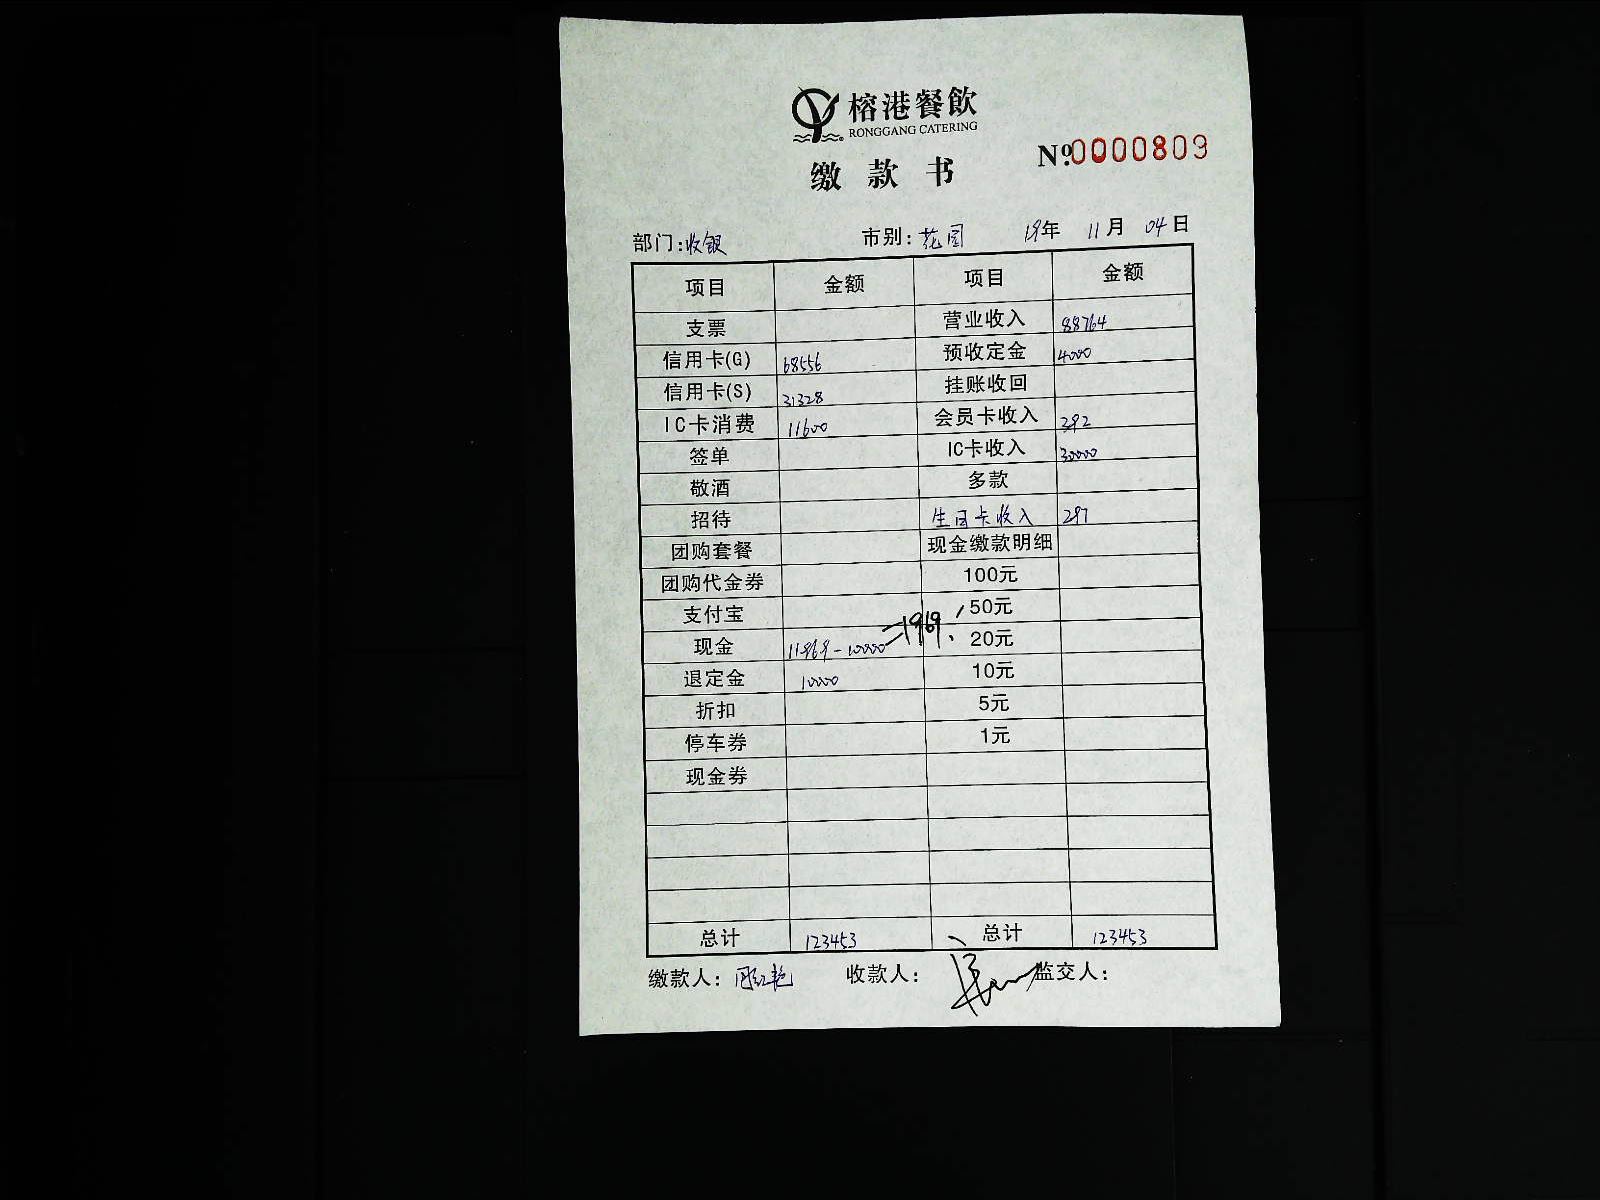 榕港餐飲
RONGGANG CATERING
缴款书
Nº.0000809
部门:收银 市别:花园 19年 11月 04日
项目 金额 项目 金额
支票 营业收入 88764
信用卡(G) 68556 预收定金 4000
信用卡(S) 31328 挂账收回
IC卡消费 11600 会员卡收入 392
签单 IC卡收入 30000
敬酒 多款
招待 生日卡收入 297
团购套餐 现金缴款明细
团购代金券 100元
支付宝 50元
现金 11969-10000=1969. 20元
退定金 10000 10元
折扣 5元
停车券 1元
现金券
总计 123453 总计 123453
缴款人: 周红艳 收款人: 监交人: